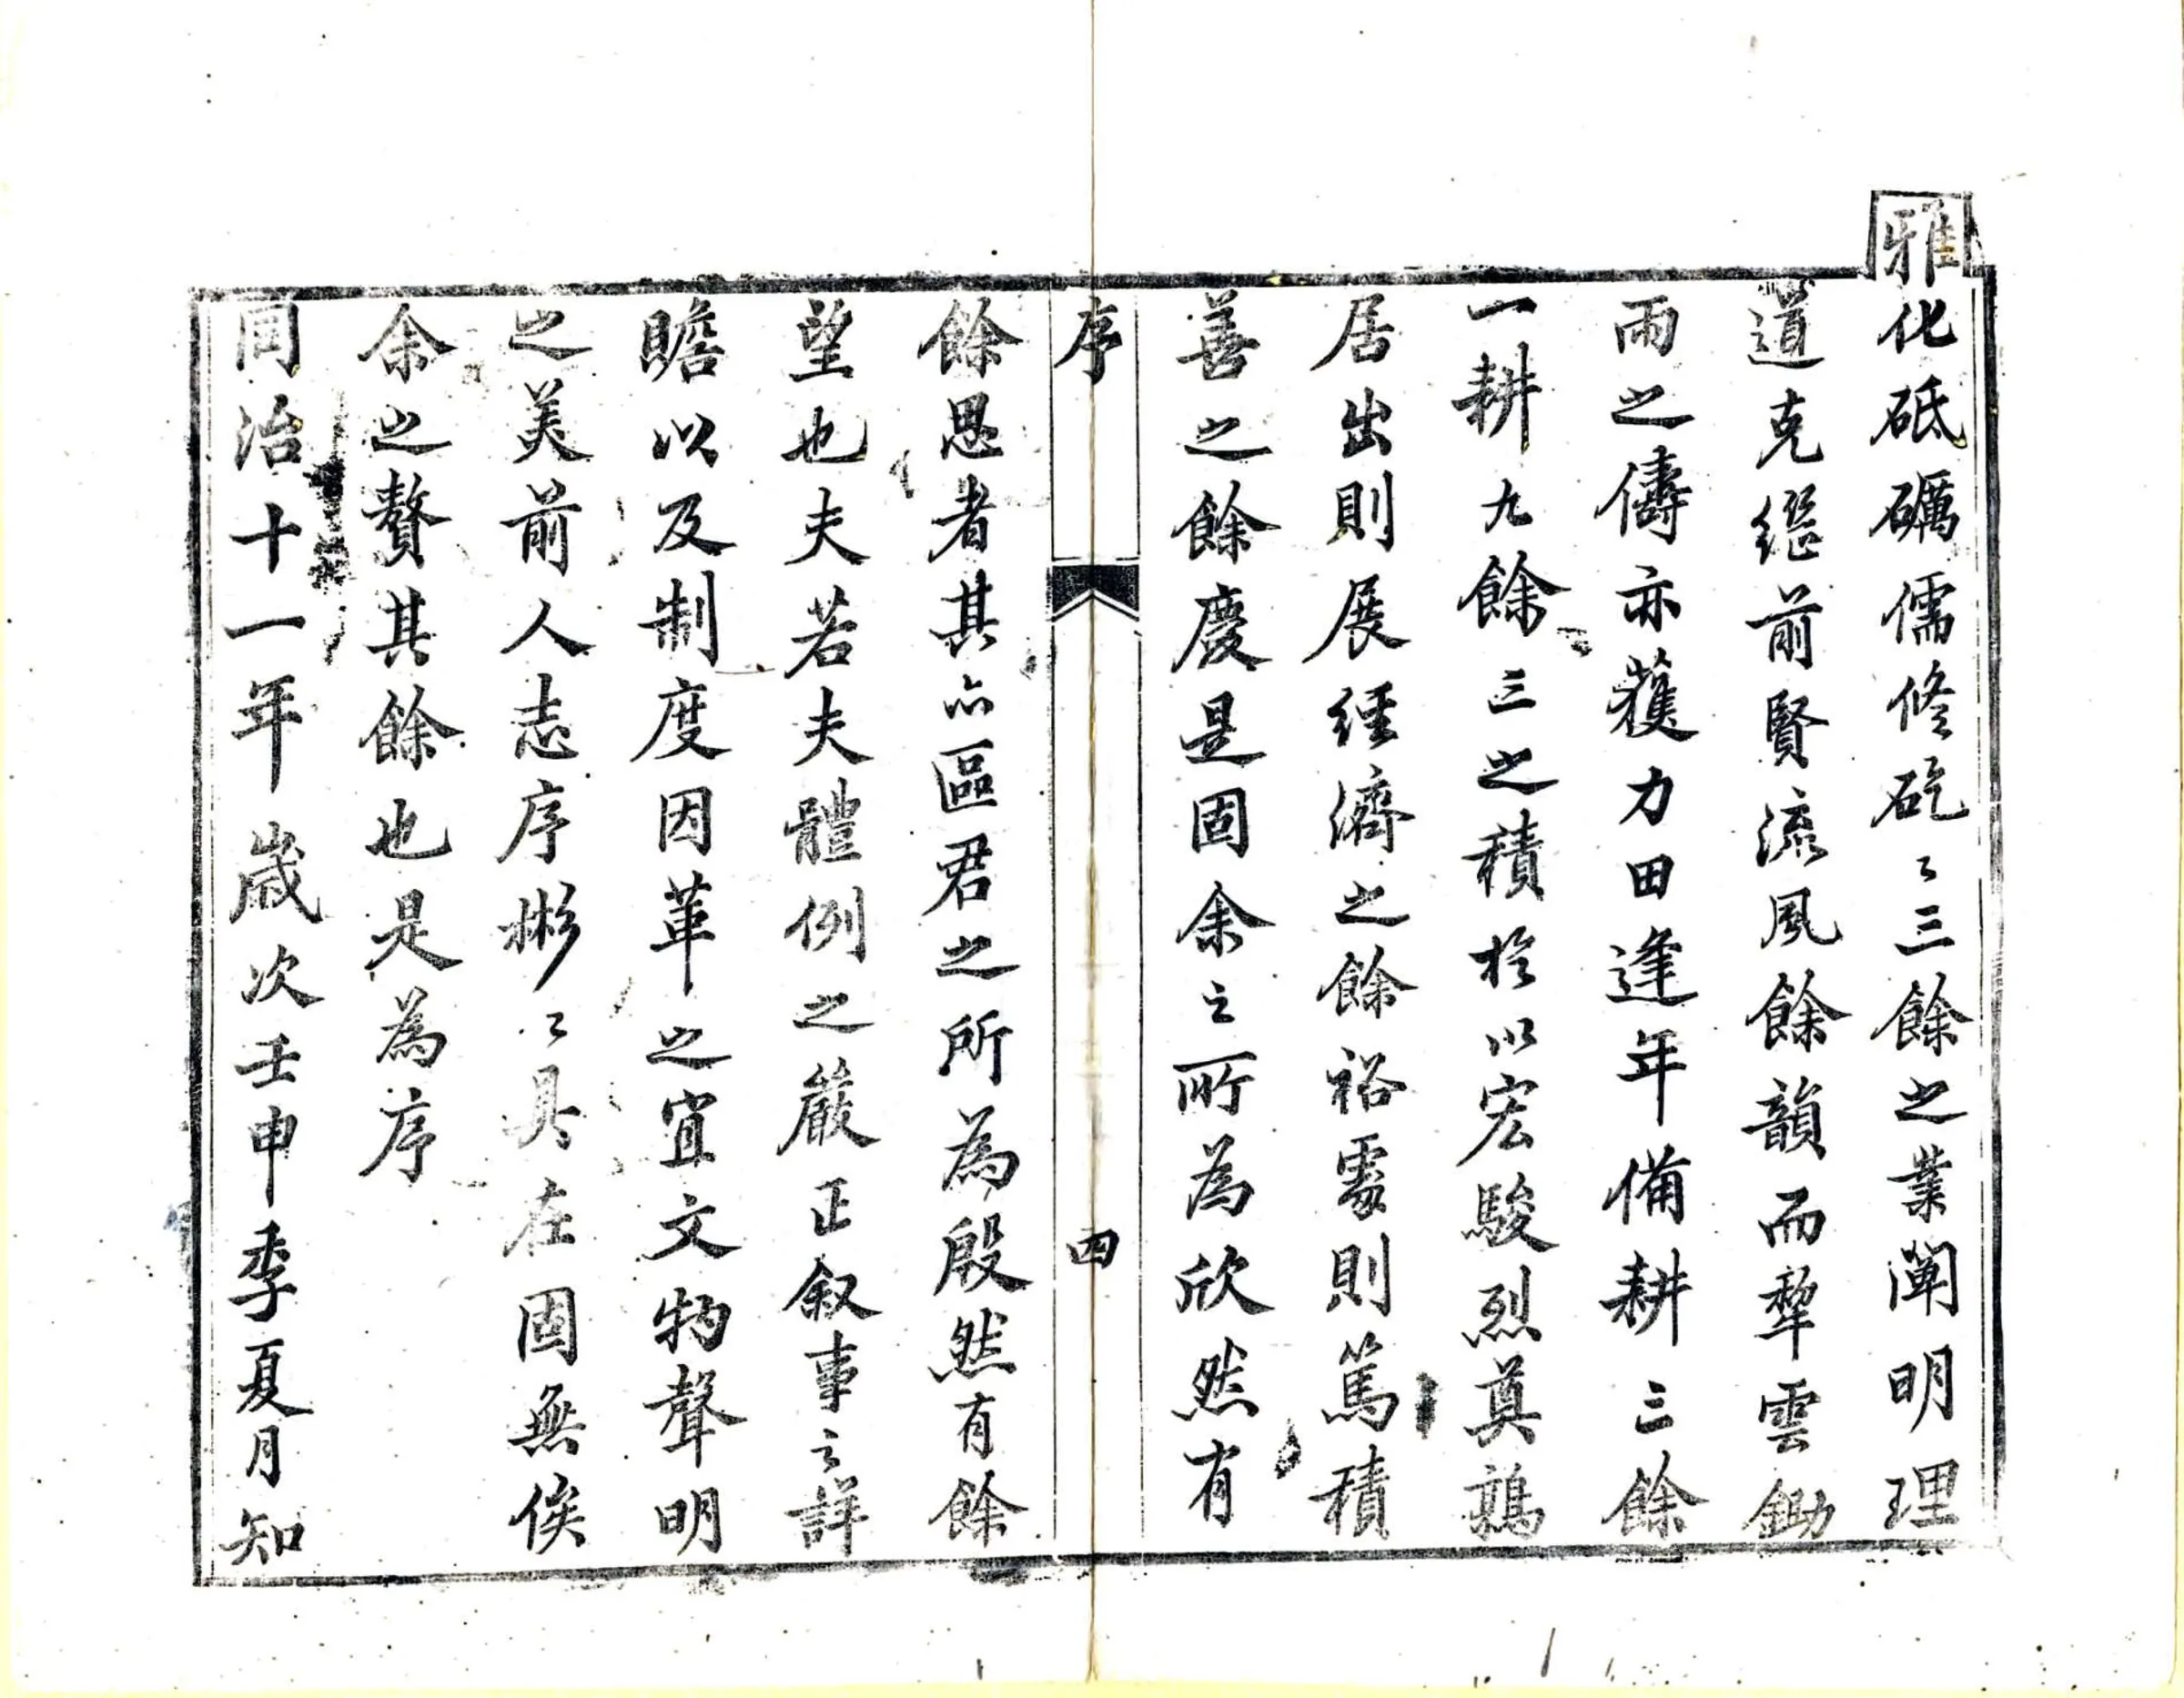 雅化砥礪儒修矻〻三餘之業闡明理
道克繼前賢流風餘韻而犂雲鋤
雨之儔亦穫力田逢年備耕三餘
一耕九餘三之積於以宏駿烈奠鴻
居出則展經濟之餘裕處則篤積
善之餘慶是固余之所為欣然有
序 四
餘思者其亦區君之所為殷然有餘
望也夫若夫體例之嚴正叙事之詳
瞻以及制度因革之宜文物聲明
之美前人志序彬〻具在固無俟
余之贅其餘也是為序
同治十一年歲次壬申季夏月知